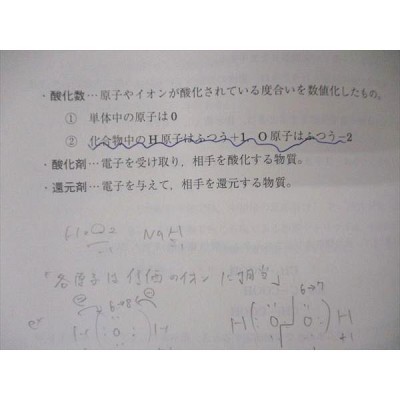 ・酸化数…原子やイオンが酸化されている度合いを数値化したもの。
① 単体中の原子は0
② 化合物中のH原子はふつう+1, O原子はふつう−2
・酸化剤…電子を受け取り，相手を酸化する物質。
・還元剤…電子を与えて，相手を還元する物質。
H2O2 NaH
-1 -1
各原子は 価のイオンに相当
6→8 6→7
H(:O:)H H(:O O:)H
+1